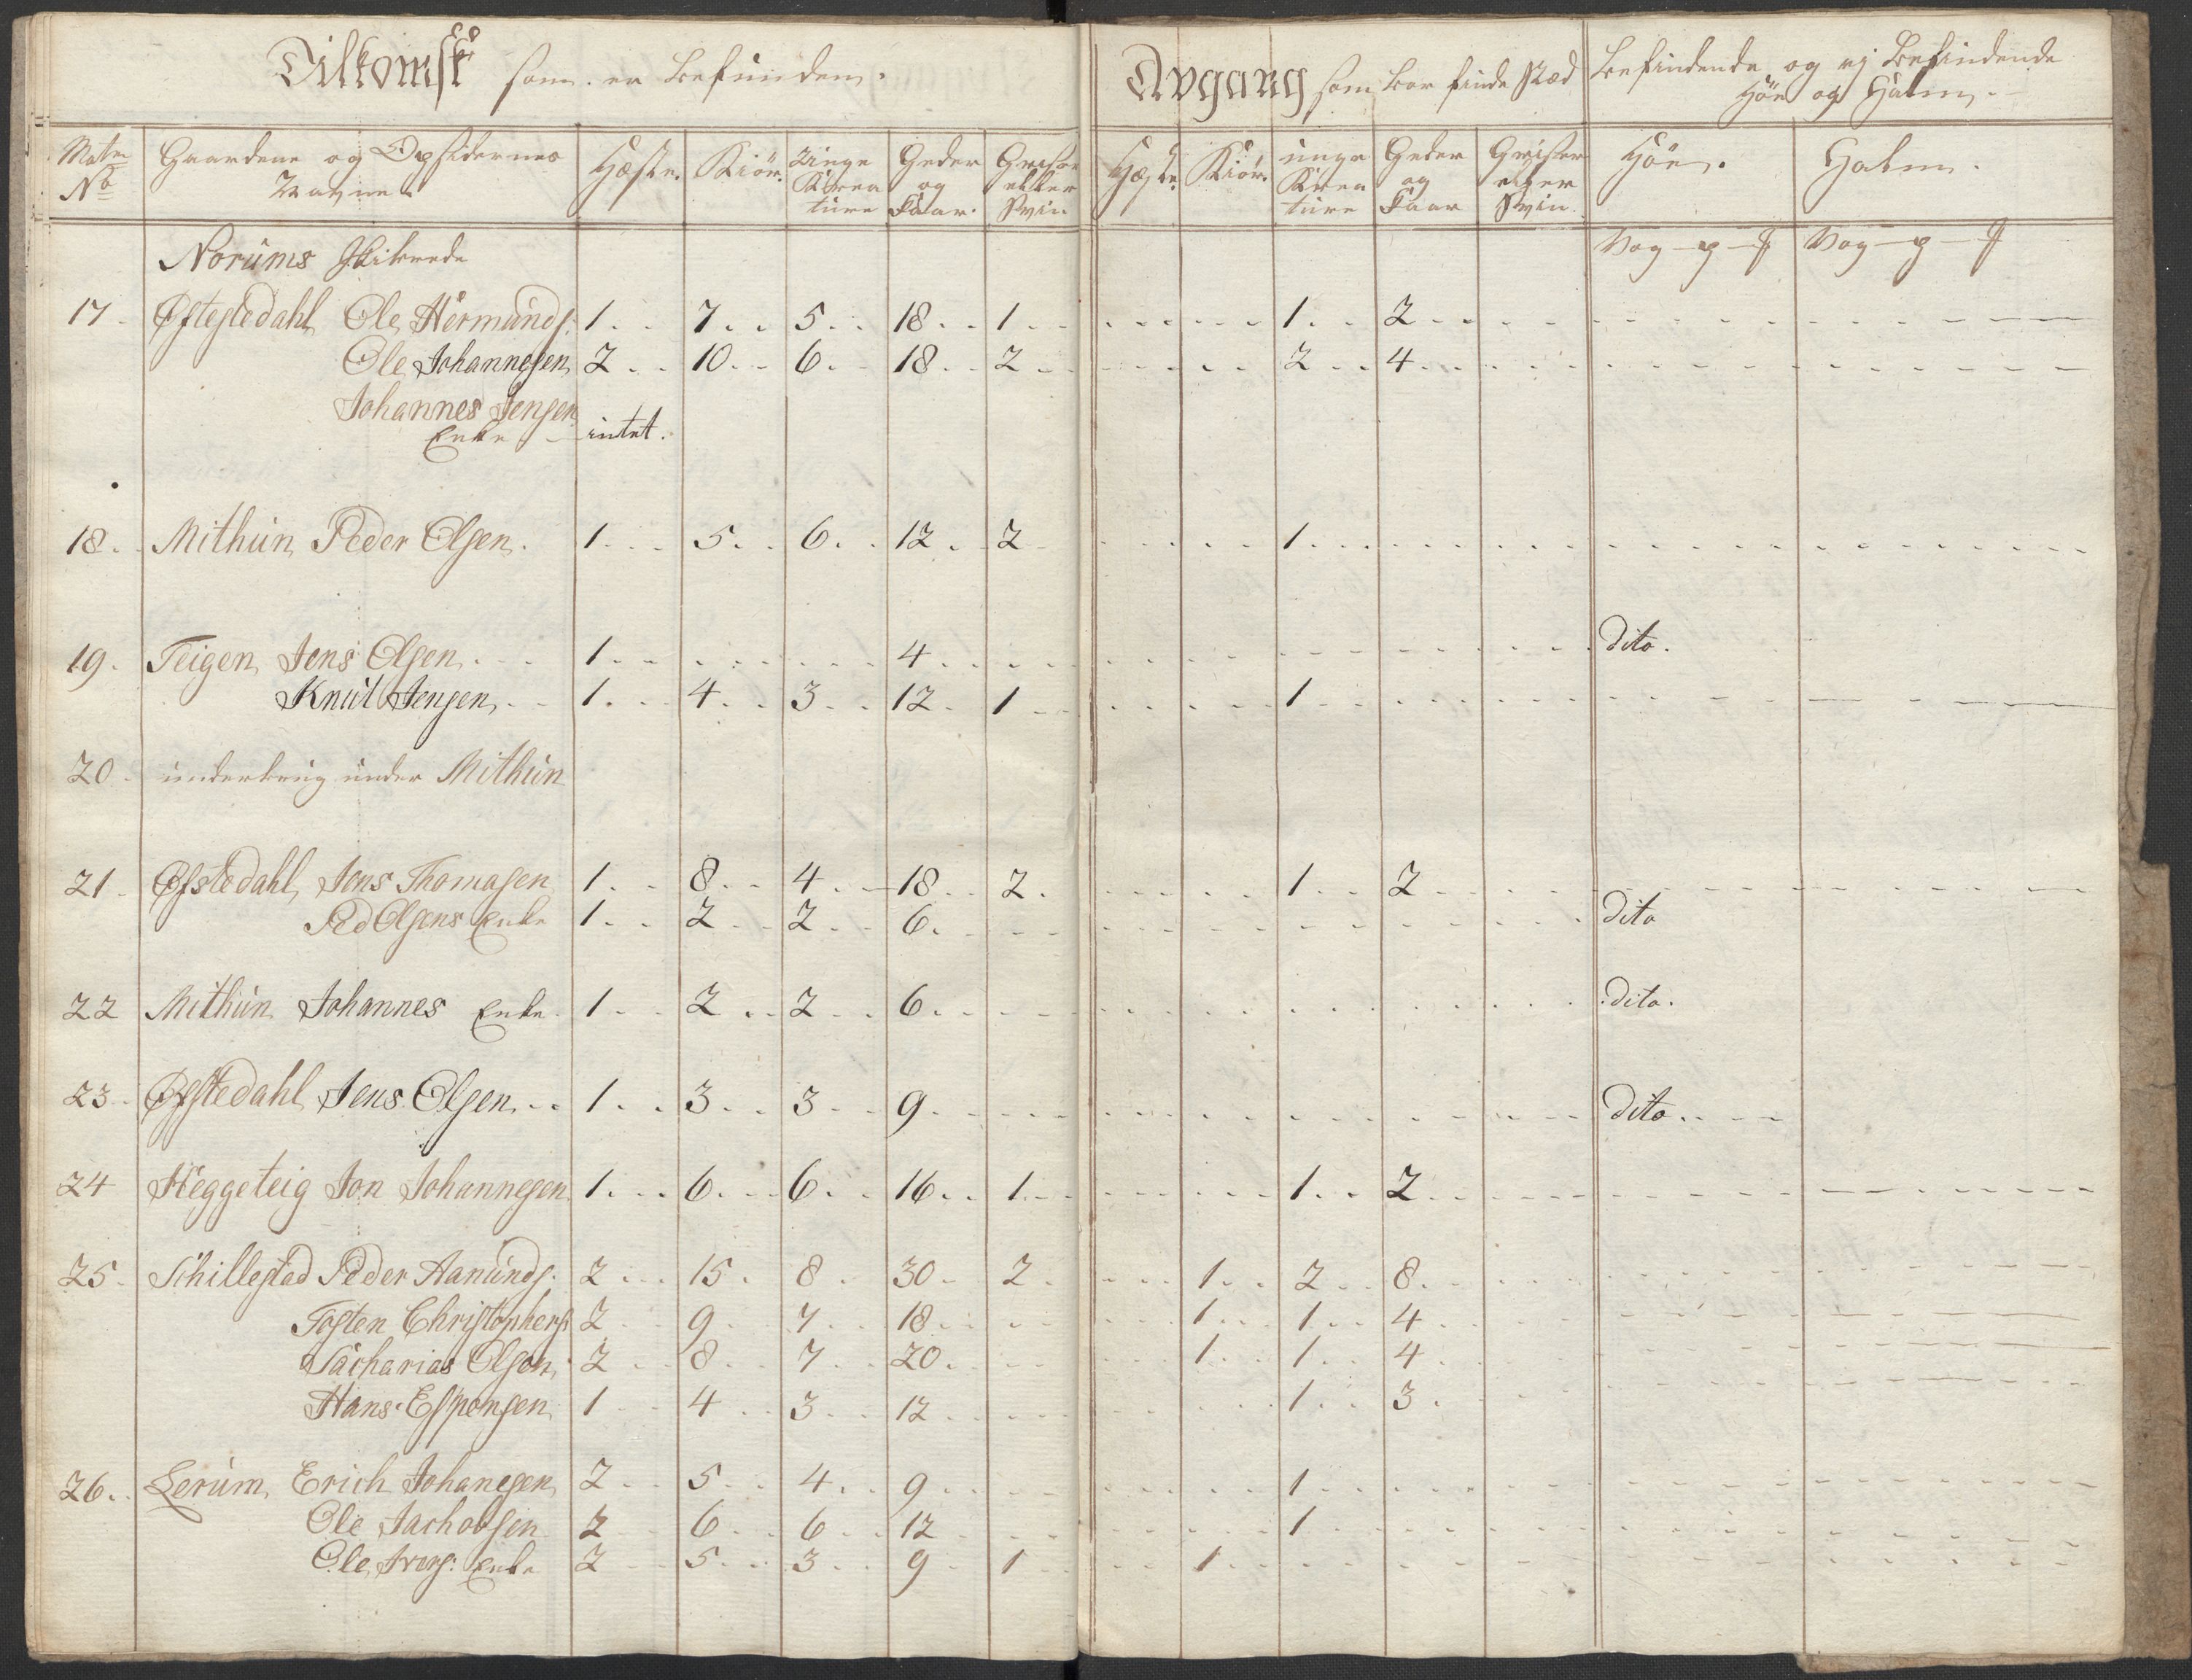 Tilkomst som er befunden.
Matr No | Gaardene og Opsidernes Navne | Hæste. | Kiör. | Unge Kreature | Geder og Faar. | Griser eller Svin
Norums Skibrede
17. Øfstedahl Ole Hermunds: 1 . . 7 . . 5 . . 18 . . 1 . .
Ole Johannesen 2 . . 10 . . 6 . . 18 . . 2 . .
Johannes Jensen
Enke – intet.
18. Mithun Peder Olsen. 1 . . 5 . . 6 . . 12 . . 2
19. Teigen Jens Olsen . . 1 . . . . . . 4 . .
Knut Jensen . . 1 . . 4 . . 3 . . 12 . 1 . .
20. underbrug under Mithun
21. Øfstedahl Jens Thomasen 1 . . 8 . . 4 . . 18 . . 2 .
Ped Olsens Enke 1 . . 2 . . 2 . . 6 . .
22 Mithun Johannes Enke 1 . . 2 . . 2 . . 6 . .
23. Øfstedahl Jens Olsen . . 1 . . 3 . . 3 . . 9 . .
24 Heggeteig Jon Johannesen 1 . . 6 . . 6 . . 16 . . 1 . .
25. Schillestad Peder Aanunds: 2 . . 15 . 8 . 30 . 2 .
Tosten Christophers: 2 . . 9 . . 7 . . 18 . .
Sacharias Olsen 2 . . 8 . . 7 . . 20 . .
Hans Espensen 1 . . 4 . . 3 . . 12 . .
26. Lerum Erich Johanesen 2 . . 5 . . 4 . . 9 . .
Ole Jachobsen 2 . . 6 . . 6 . . 12 . .
Ole Ivers: Enke 2 . . 5 . . 3 . . 9 . . 1
Avgang som bör finde Stæd
Befindende og ej Befindende
Höe og Halm.
Hæste. | Kiör. | unge Kreature | Geder og Faar | Griser eller Svin. | Höe. | Halm.
Vog – p – | Vog – p –
1 . . 2 . .
2 . . 4 . .
1 . .
dito.
1 . .
1 . . 2 . .
dito
dito.
dito . .
1 . . 2 . .
1 . . 2 . . 8 . .
1 . . 1 . . 4 . .
1 . . 1 . . 4 . .
1 . . 3 .
1 . .
1 . .
1 . .